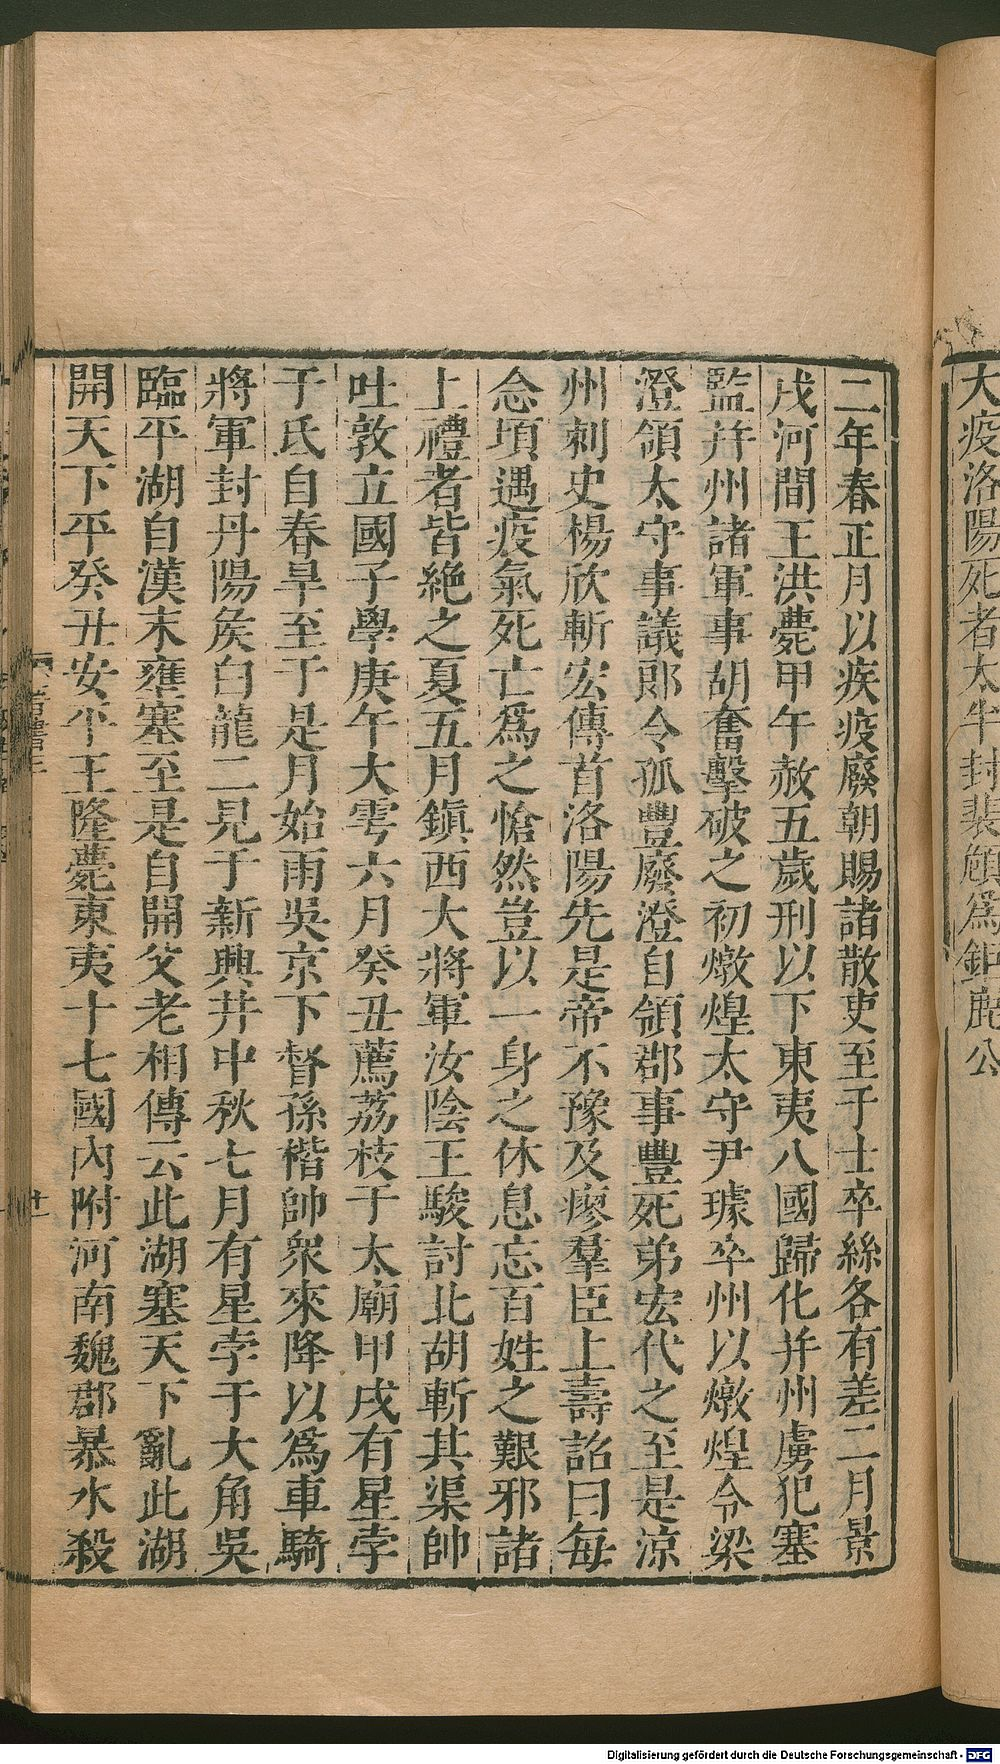 大疫洛陽死者太半封裴頠爲鉅鹿公
二年春正月以疾疫廢朝賜諸散吏至于士卒絲各有差二月景
戌河間王洪薨甲午赦五歲刑以下東夷八國歸化并州虜犯塞
監并州諸軍事胡奮擊破之初燉煌太守尹璩卒州以燉煌令梁
澄領太守事議郎令狐豐廢澄自領郡事豐死弟宏代之至是涼
州刺史楊欣斬宏傳首洛陽先是帝不豫及瘳羣臣上壽詔曰每
念頃遇疫氣死亡爲之愴然豈以一身之休息忘百姓之艱邪諸
上禮者皆絶之夏五月鎭西大將軍汝陰王駿討北胡斬其渠帥
吐敦立國子學庚午大雩六月癸丑薦荔枝于太廟甲戌有星孛
于氐自春旱至于是月始雨吳京下督孫楷帥衆來降以爲車騎
將軍封丹陽矦白龍二見于新興井中秋七月有星孛于大角吳
臨平湖自漢末壅塞至是自開父老相傳云此湖塞天下亂此湖
開天下平癸丑安平王隆薨東夷十七國內附河南魏郡暴水殺
廿一
Digitalisierung gefördert durch die Deutsche Forschungsgemeinschaft - DFG